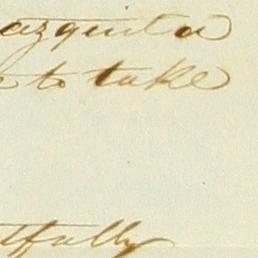 azquita
to take
tfully